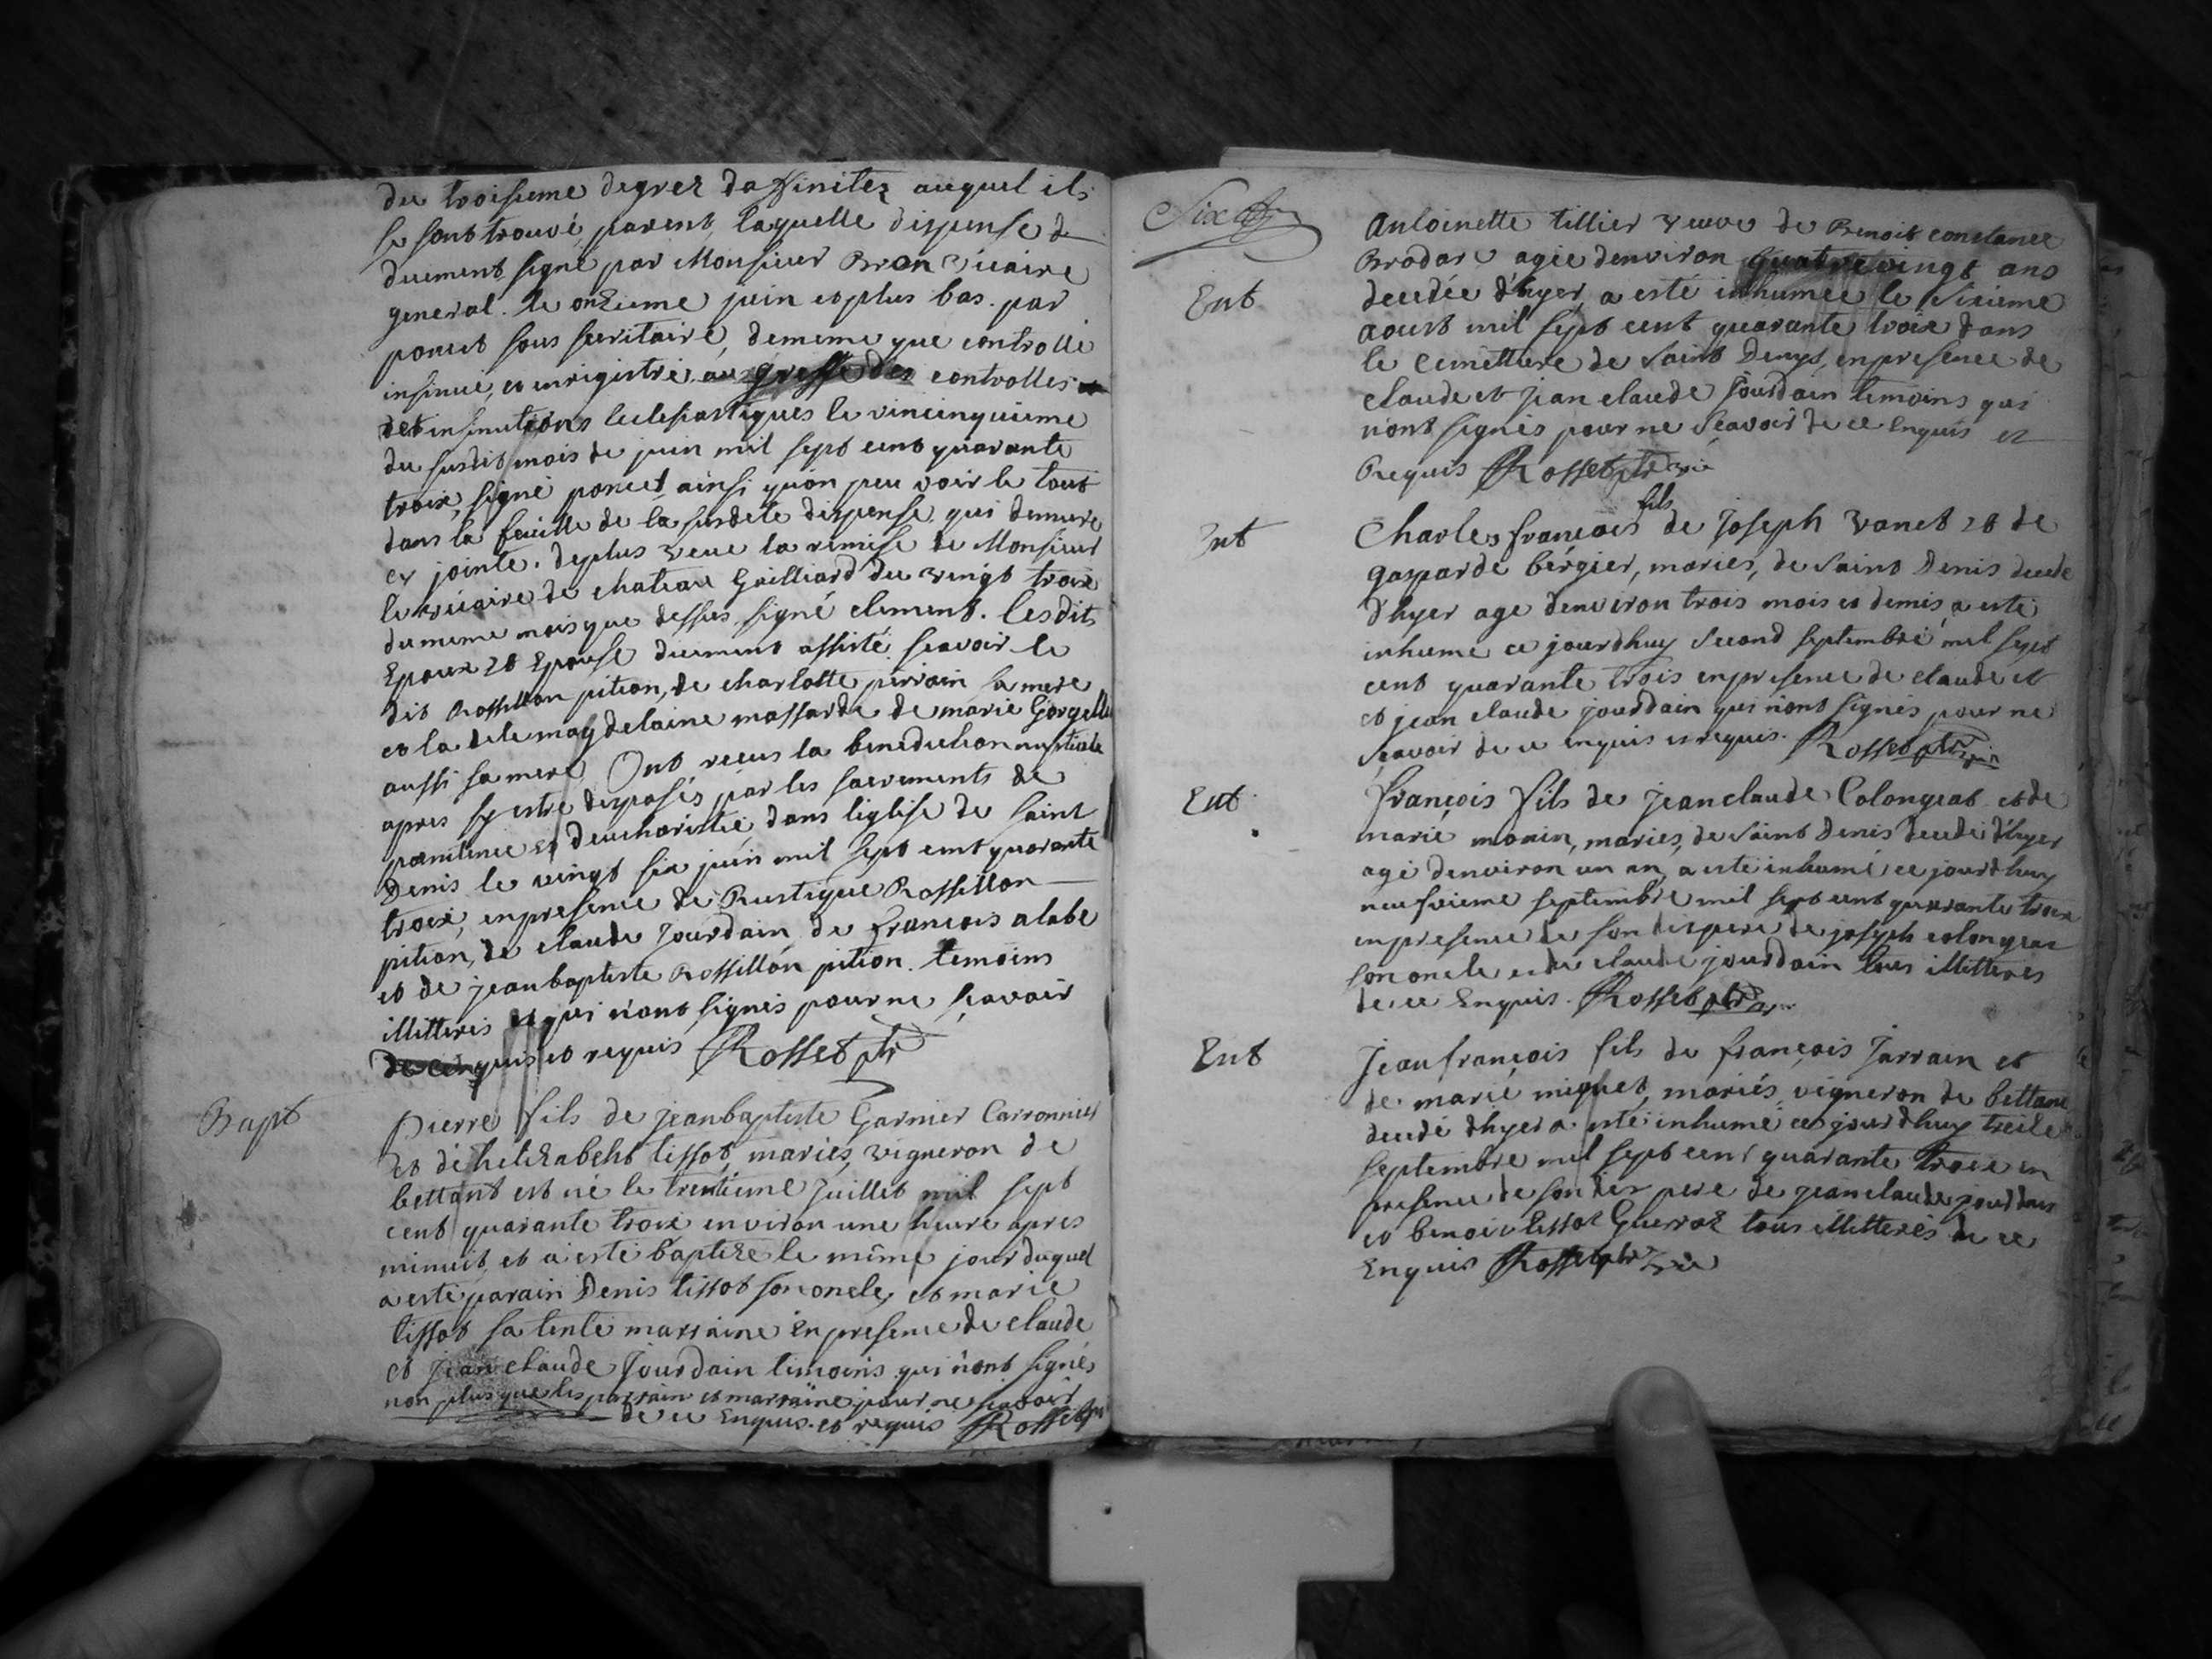 du troisieme degrez daffinitez auquel ils
se sont trouvé parent, laquelle dispense d
duement signé par Monsieur Bron vicaire
general. le onzieme juin et plus bas. par
poncet sous secritaire, dememe que controllé
insinué, et enrigistré au greffe des controlles et
des insinutions Eclesiastiques le vincinquieme
du susdit mois de juin mil sept cent quarante
troix, signé poncet ainsi qu'on peu voir le tout
dans la feuille de la susdete dispense qui demure
cy jointe. deplus veue la remise de Monsieur
le vicaire de chateau Gailliard du vingt troix
du meme mois que dessus, signé clement. lesdits
Epoux et Epouse duement assisté scavoir le
dit Rossillon pition, de charlotte perrain sa mere
et la dete magdelaine massarde de marie Gorgelle
aussi sa mere Ont receus la benediction nuptiale
apres sy estre disposés par les sacrements de
pœnitence et deucharistie, dans l'iglise de saint
Denis le vingt six juin mil sept cent quarante
troix, enpresence de Rustique Rossillon
pition, de claude Jourdain de francois alabe
et de jeanbaptiste Rossillon pition. temoins
illitteres et qui n'ont signés pour ne scavoir
de ce enquis et requis Rosset ptr
Bapt
Pierre fils de jeanbaptiste Garnier Carronnier
et de helizabeht tissot, mariés, vigneron de
bettant est né le trentieme Juillet mil sept
cent quarante troix environ une heure apres
minuit, et a esté baptizé le même jour duquel
a esté parain Denis tissot son oncle, et marie
tissot sa tente marraine en presence de claude
et Jean claude Jourdain temoins qui n'ont signés
non plus que les parrain et marraine pour ne scavoir
de ce Enquis et requis Rosset ptr
Six
Ent
Antoinette tillier veuve de Benoit constance
Brodar agée denviron quatre vingt ans
decedée d'hyer, a esté inhumée le sixieme
aoust mil sept cent quarante troix dans
le cemettiere de saint Denys, enpresence de
claude et Jean claude Jourdain temoins qui
n'ont signés pour ne scavoir de ce Enquis et
Requis Rosset ptr vic
Ent
fils
Charles francois de Joseph vanet et de
gasparde bérgier, mariés, de saint Denis decede
d'hyer age denviron trois mois et demis a esté
inhume ce jourdhuy second septembre mil sept
cent quarante trois enpresence de claude et
et jean claude Jourdain qui n'ont signés pour ne
scavoir de ce enquis et requis. Rosset ptr vic
Ent
françois fils de Jeanclaude Colongeat et de
marie monin, mariés, de saint Denis decedé d'hyer
agé denviron un an, a esté inhumé ce jourdhuy
neufvieme septembre mil sept cent quarante troix
enpresence de son dit pere de joseph colongeat
son oncle et de claude jourdain tous illitteres
de ce Enquis. Rosset ptr vic
Ent
Jeanfrançois fils de françois Jarrain et
de marie miquet, mariés, vigneron de bettant
decedé d'hyer a esté inhumé ce jourdhuy treize
septembre mil sept cent quarante troix en
presence de son dit pere de jeanclaude jourdain
et benoit tissot Guerrat tous illitteres de ce
Enquis Rosset ptr vic